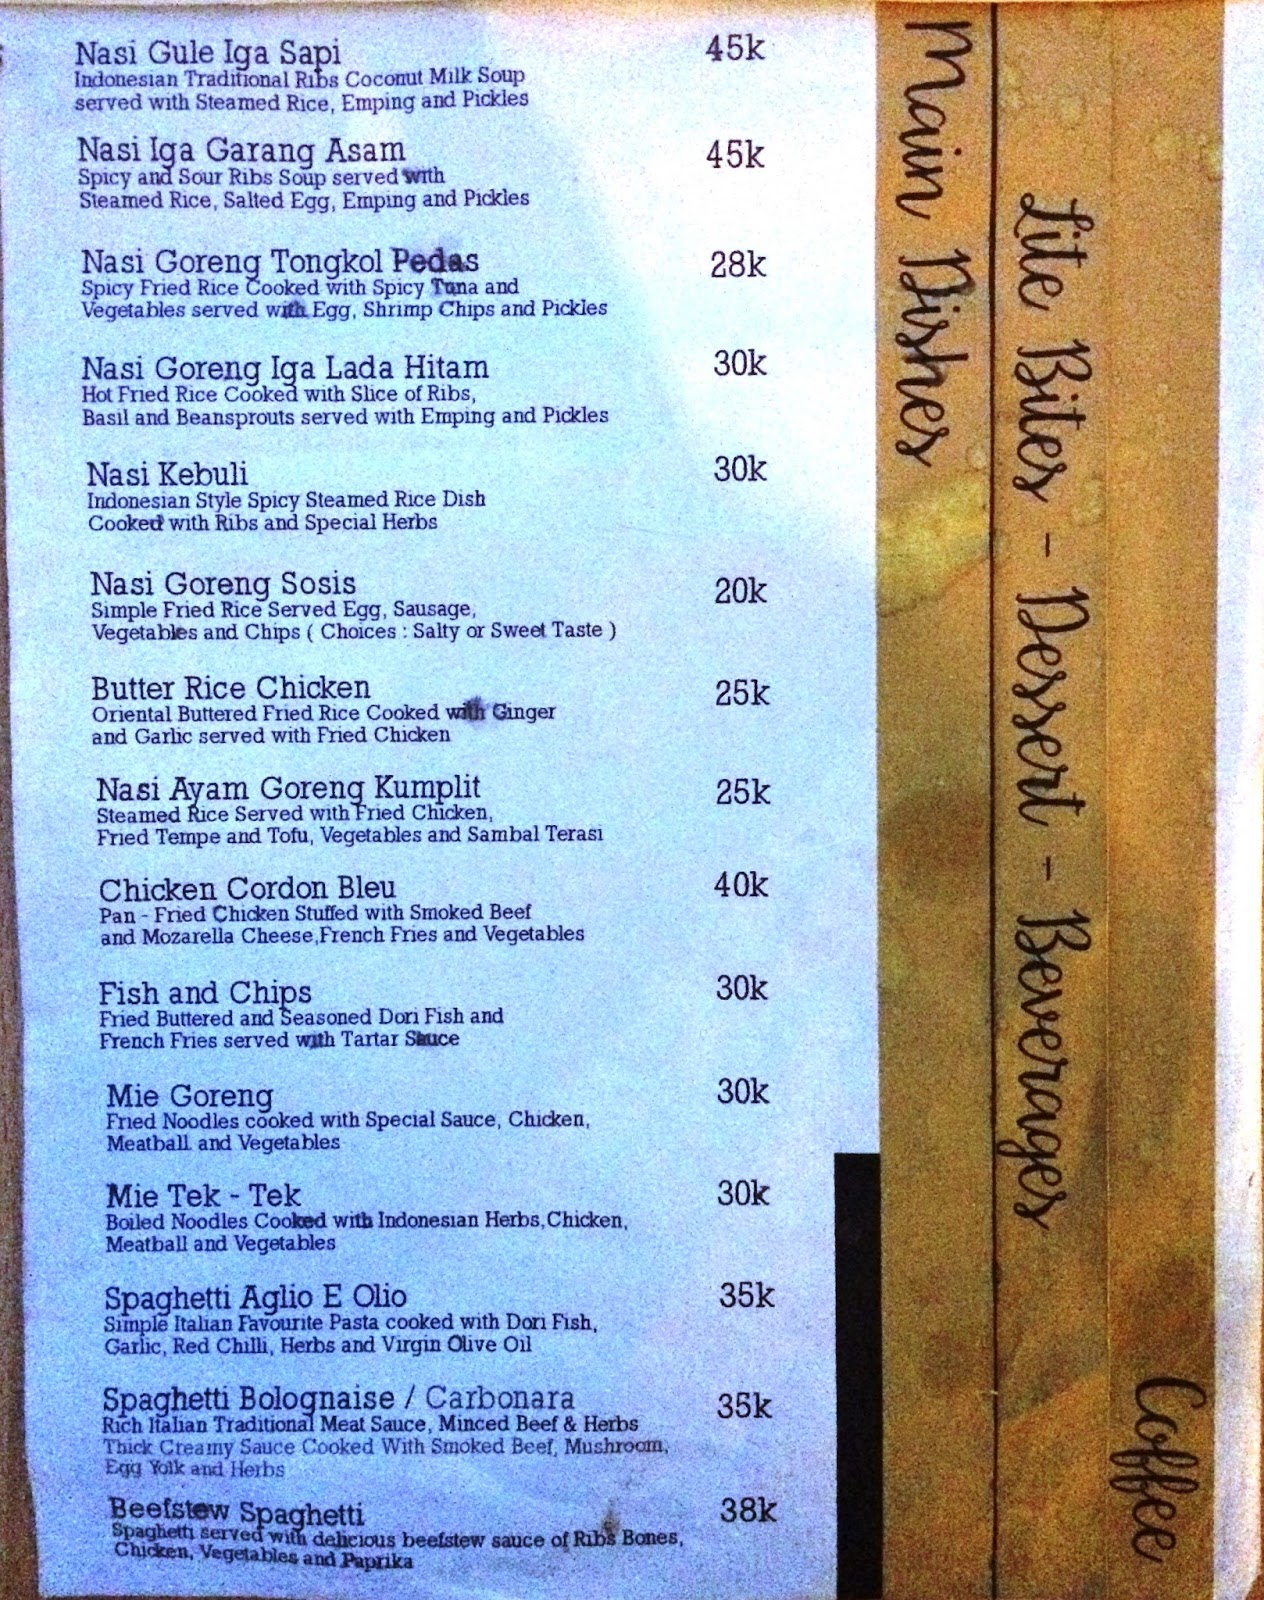 Nasi Gule Iga Sapi 45k
Indonesian Traditional Ribs Coconut Milk Soup
served with Steamed Rice, Emping and Pickles
Nasi Iga Garang Asam 45k
Spicy and Sour Ribs Soup served with
Steamed Rice, Salted Egg, Emping and Pickles
Nasi Goreng Tongkol Pedas 28k
Spicy Fried Rice Cooked with Spicy Tuna and
Vegetables served with Egg, Shrimp Chips and Pickles
Nasi Goreng Iga Lada Hitam 30k
Hot Fried Rice Cooked with Slice of Ribs,
Basil and Beansprouts served with Emping and Pickles
Nasi Kebuli 30k
Indonesian Style Spicy Steamed Rice Dish
Cooked with Ribs and Special Herbs
Nasi Goreng Sosis 20k
Simple Fried Rice Served Egg, Sausage,
Vegetables and Chips ( Choices : Salty or Sweet Taste )
Butter Rice Chicken 25k
Oriental Buttered Fried Rice Cooked with Ginger
and Garlic served with Fried Chicken
Nasi Ayam Goreng Kumplit 25k
Steamed Rice Served with Fried Chicken,
Fried Tempe and Tofu, Vegetables and Sambal Terasi
Chicken Cordon Bleu 40k
Pan - Fried Chicken Stuffed with Smoked Beef
and Mozarella Cheese,French Fries and Vegetables
Fish and Chips 30k
Fried Buttered and Seasoned Dori Fish and
French Fries served with Tartar Sauce
Mie Goreng 30k
Fried Noodles cooked with Special Sauce, Chicken,
Meatball and Vegetables
Mie Tek - Tek 30k
Boiled Noodles Cooked with Indonesian Herbs,Chicken,
Meatball and Vegetables
Spaghetti Aglio E Olio 35k
Simple Italian Favourite Pasta cooked with Dori Fish,
Garlic, Red Chilli, Herbs and Virgin Olive Oil
Spaghetti Bolognaise / Carbonara 35k
Rich Italian Traditional Meat Sauce, Minced Beef & Herbs
Thick Creamy Sauce Cooked With Smoked Beef, Mushroom,
Egg Yolk and Herbs
Beefstew Spaghetti 38k
Spaghetti served with delicious beefstew sauce of Ribs Bones,
Chicken, Vegetables and Paprika
Main Dishes
Lite Bites - Dessert - Beverages
Coffee